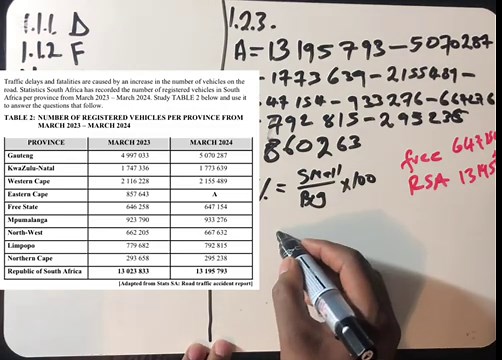 1.1.1 D
1.1.2 F
Traffic delays and fatalities are caused by an increase in the number of vehicles on the
road. Statistics South Africa has recorded the number of registered vehicles in South
Africa per province from March 2023 – March 2024. Study TABLE 2 below and use it
to answer the questions that follow.
TABLE 2: NUMBER OF REGISTERED VEHICLES PER PROVINCE FROM
MARCH 2023 – MARCH 2024
PROVINCE MARCH 2023 MARCH 2024
Gauteng 4 997 033 5 070 287
KwaZulu-Natal 1 747 336 1 773 639
Western Cape 2 116 228 2 155 489
Eastern Cape 857 643 A
Free State 646 258 647 154
Mpumalanga 923 790 933 276
North-West 662 205 667 632
Limpopo 779 682 792 815
Northern Cape 293 658 295 238
Republic of South Africa 13 023 833 13 195 793
[Adapted from Stats SA: Road traffic accident report]
1.2.3.
A = 13195793 – 5070287
– 1773639 – 2155489 –
47154 – 933276 –
792815 – 295238
860263
% = Small/Big × 100
free
RSA